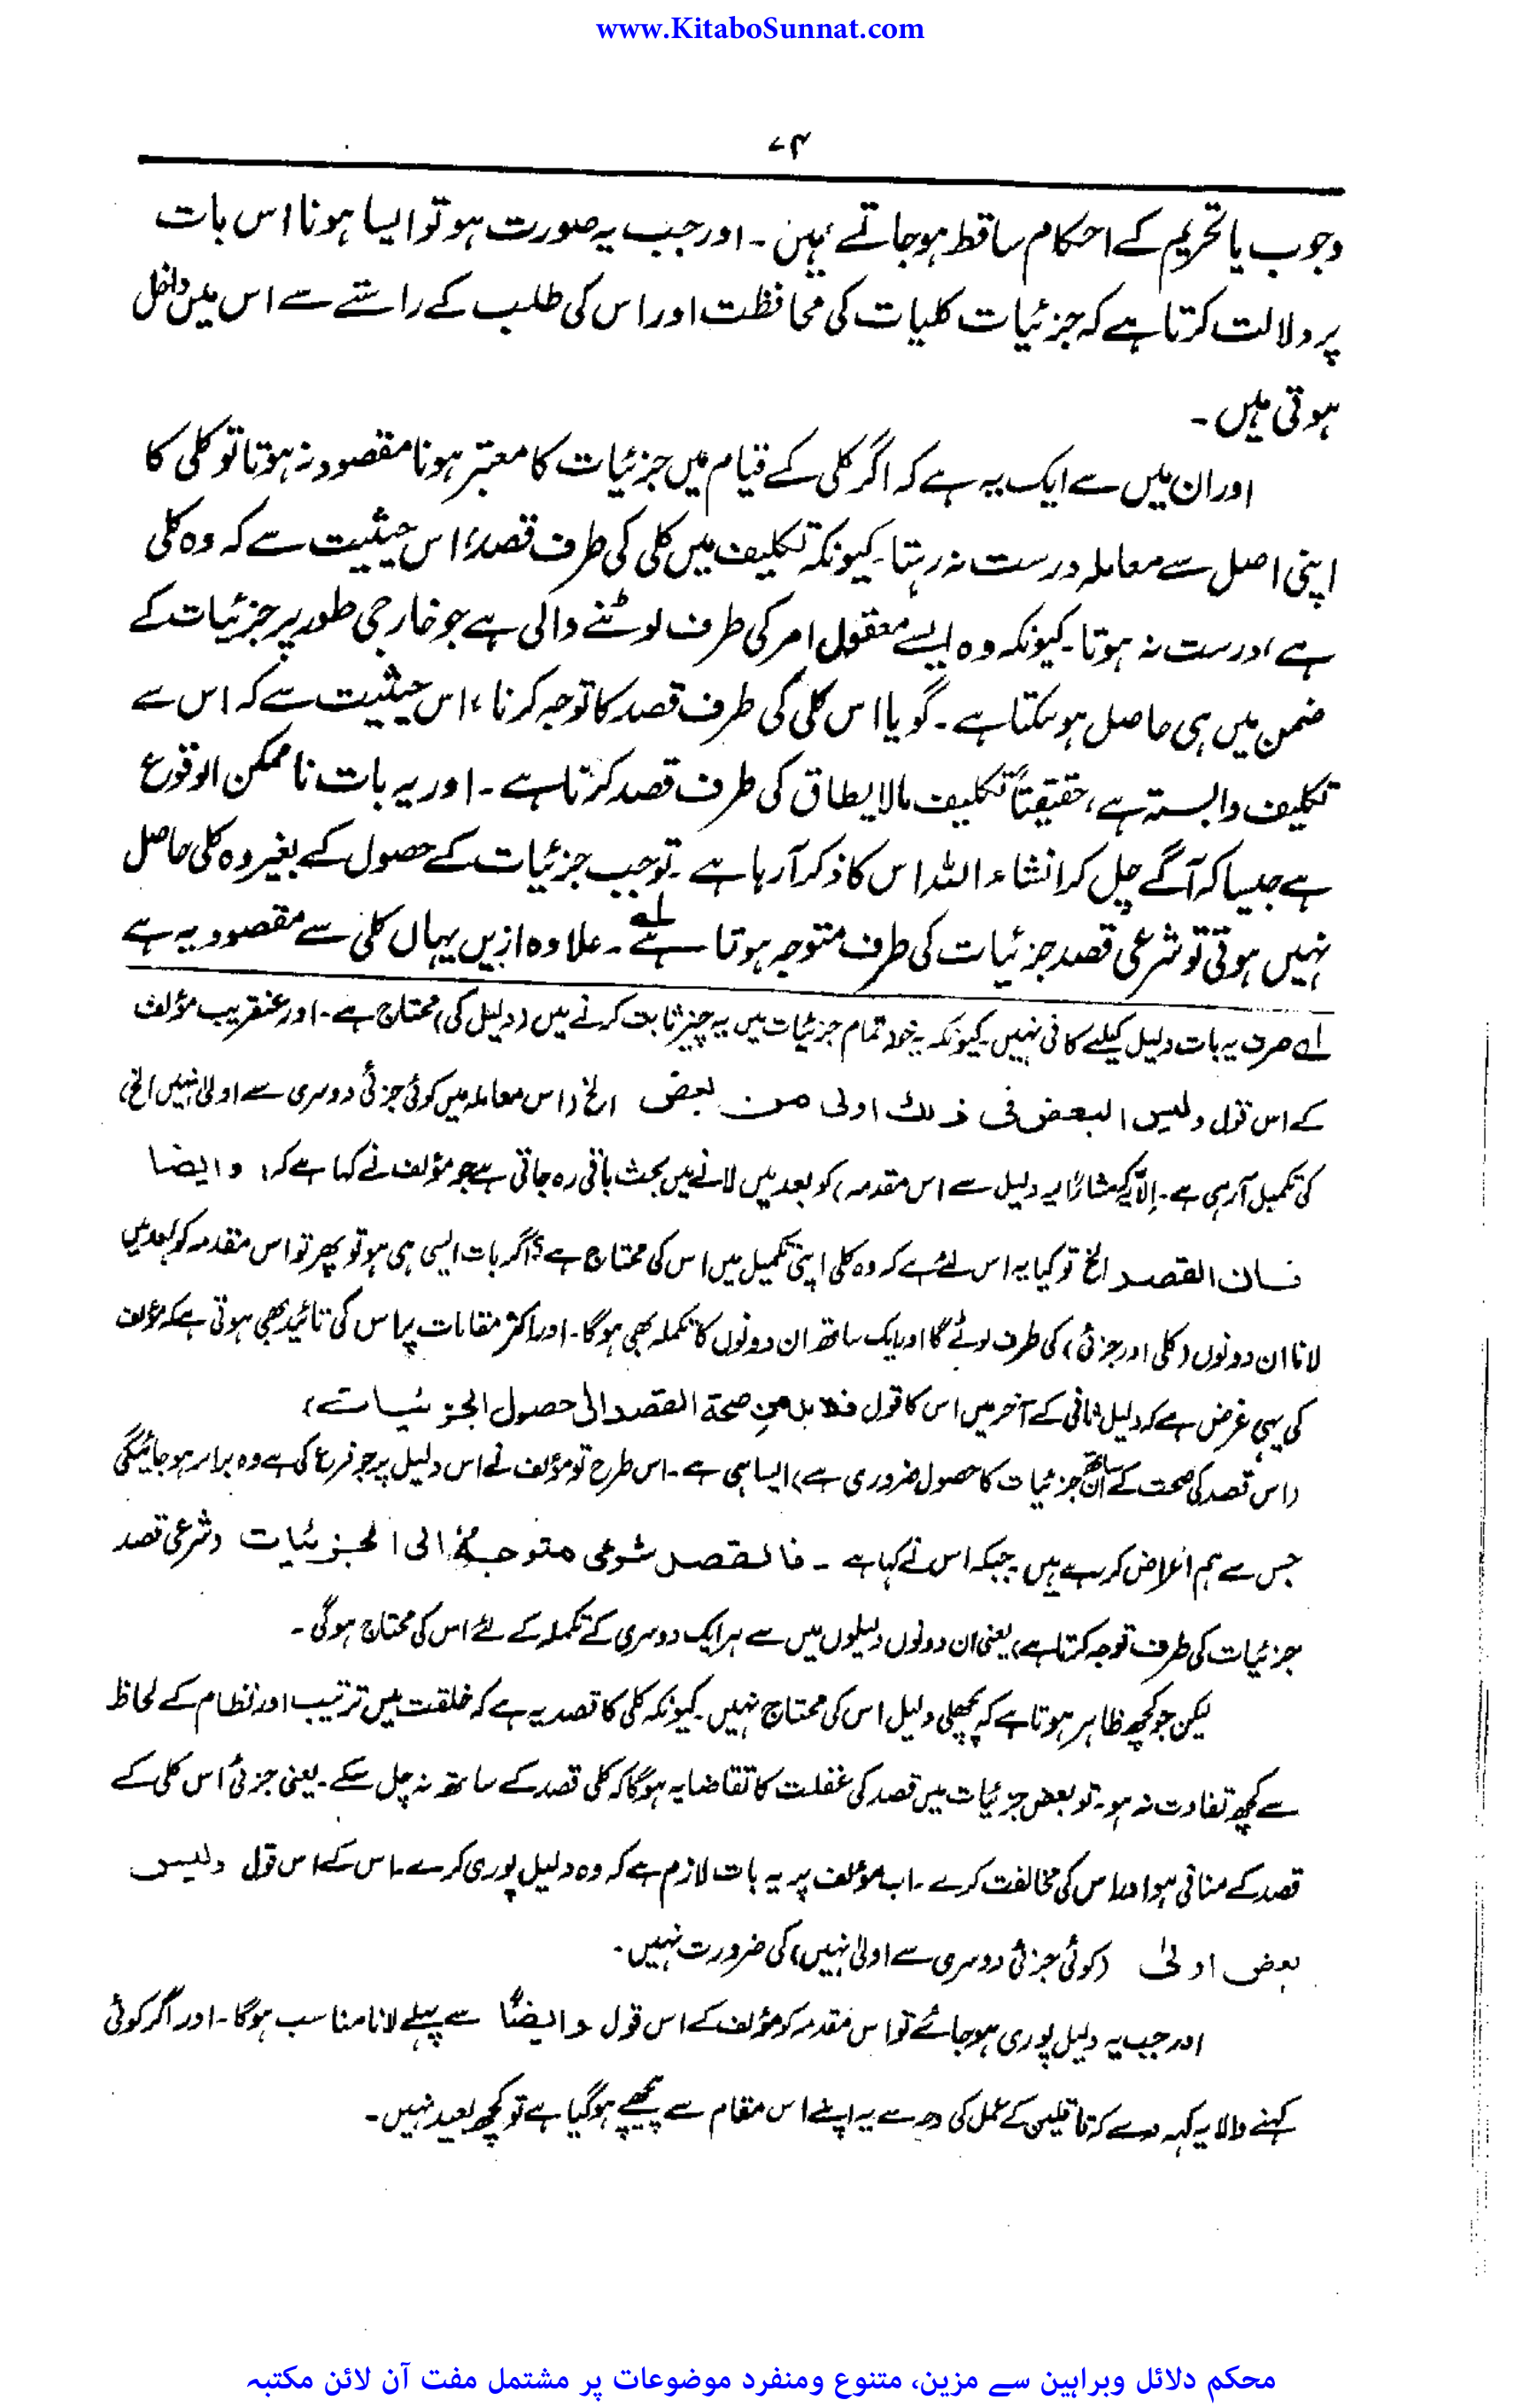 www.KitaboSunnat.com
۷۴
وجوب یا تحریم کے احکام ساقط ہو جاتے ہیں۔ اور جب یہ صورت ہو تو ایسا ہونا اس بات
پر دلالت کرتا ہے کہ جزئیات کلیات کی محافظت اور اس کی طلب کے راستے سے اس میں داخل
ہوتی ہیں۔
اور ان میں سے ایک یہ ہے کہ اگر کلی کے قیام میں جزئیات کا معتبر ہونا مقصود نہ ہوتا تو کلی کا
اپنی اصل سے معاملہ درست نہ رہتا۔ کیونکہ تکلیف میں کلی کی طرف قصد، اس حیثیت سے کہ وہ کلی
ہے، درست نہ ہوتا۔ کیونکہ وہ ایسے معقول امر کی طرف لوٹنے والی ہے جو خارجی طور پر جزئیات کے
ضمن میں ہی حاصل ہو سکتا ہے۔ گویا اس کلی کی طرف قصد کا توجہ کرنا، اس حیثیت سے کہ اس سے
تکلیف وابستہ ہے، حقیقتاً تکلیف مالا یطاق کی طرف قصد کرتا ہے۔ اور یہ بات ناممکن الوقوع
ہے جیسا کہ آگے چل کر انشاء اللہ اس کا ذکر آ رہا ہے۔ تو جب جزئیات کے حصول کے بغیر وہ کلی حاصل
نہیں ہوتی تو شرعی قصد جزئیات کی طرف متوجہ ہوتا ہے۱؎۔ علاوہ ازیں یہاں کلی سے مقصود یہ ہے
۱ے صرف یہ بات دلیل کیلئے کافی نہیں۔ کیونکہ یہ خود تمام جزئیات میں یہ چیز ثابت کرنے میں (دلیل کی) محتاج ہے۔ اور عنقریب مؤلف
کے اس قول ولیس البعض فی ذلک اولی من بعض الخ (اس معاملہ میں کوئی جزئی دوسری سے اولیٰ نہیں الخ)
کی تکمیل آ رہی ہے۔ الا یہ کہ مشارٌ الیہ دلیل سے اس مقدمہ کو بعد میں لانے میں بحث باقی رہ جاتی ہے جو مؤلف نے کہا ہے کہ: وایضا
فان القصد الخ تو کیا یہ اس لئے ہے کہ وہ کلی اپنی تکمیل میں اس کی محتاج ہے؟ اگر بات ایسی ہی ہو تو پھر تو اس مقدمہ کو بعد میں
لانا ان دونوں (کلی اور جزئی) کی طرف لوٹے گا اور ایک ساتھ ان دونوں کا تکملہ بھی ہوگا۔ اور اکثر مقامات پر اس کی تائید بھی ہوتی ہے کہ مؤلف
کی یہی غرض ہے کہ دلیل ثانی کے آخر میں اس کا قول فلا بد من صحة القصد الی حصول الجزئیات)
(اس قصد کی صحت کے ساتھ ان جزئیات کا حصول ضروری ہے) ایسا ہی ہے۔ اس طرح تو مؤلف نے اس دلیل پر جو فرع کی ہے وہ برابر ہو جائیگی
جس سے ہم اعراض کر رہے ہیں۔ جبکہ اس نے کہا ہے۔ فالقصد شرعی متوجہ الی الجزئیات (شرعی قصد
جزئیات کی طرف توجہ کرتا ہے) یعنی ان دونوں دلیلوں میں سے ہر ایک دوسری کے تکملہ کے لئے اس کی محتاج ہوگی۔
لیکن جو کچھ ظاہر ہوتا ہے کہ پچھلی دلیل اس کی محتاج نہیں۔ کیونکہ کلی کا قصد یہ ہے کہ خلقت میں ترتیب اور نظام کے لحاظ
سے کچھ تفاوت نہ ہو۔ تو بعض جزئیات میں قصد کی غفلت کا تقاضا یہ ہوگا کہ کلی قصد کے ساتھ نہ چل سکے۔ یعنی جزئی اس کلی کے
قصد کے منافی ہو اور اس کی مخالفت کرے۔ اب مؤلف پر یہ بات لازم ہے کہ وہ دلیل پوری کرے۔ اس کے اس قول ولیس
بعض اولیٰ (کوئی جزئی دوسری سے اولیٰ نہیں) کی ضرورت نہیں۔
اور جب یہ دلیل پوری ہو جائے تو اس مقدمہ کو مؤلف کے اس قول وایضًا سے پہلے لانا مناسب ہوگا۔ اور اگر کوئی
کہنے والا یہ کہہ دے کہ ناقلین کے عمل کی وجہ سے یہ اپنے اس مقام سے پیچھے ہو گیا ہے تو کچھ بعید نہیں۔
محکم دلائل وبراہین سے مزین، متنوع ومنفرد موضوعات پر مشتمل مفت آن لائن مکتبہ